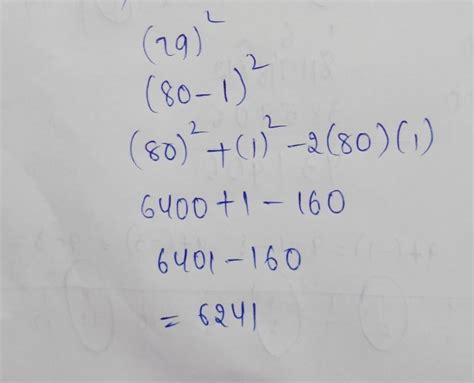 (79)²
(80-1)²
(80)²+(1)²-2(80)(1)
6400+1-160
6401-160
= 6241